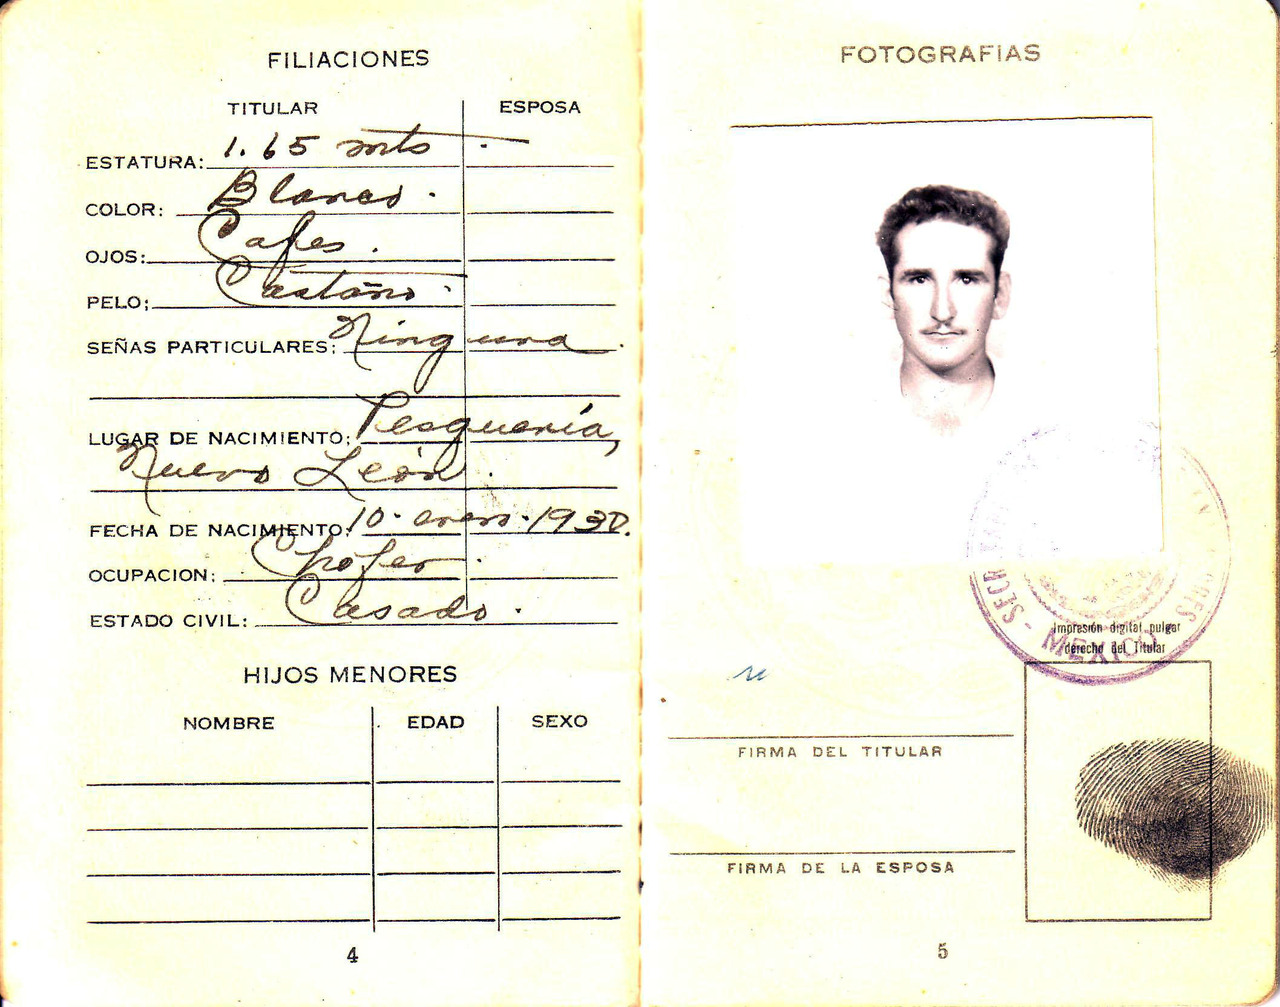 FILIACIONES
TITULAR ESPOSA
ESTATURA: 1.65 mts.
COLOR: Blanco.
OJOS: Cafes.
PELO; Castaño.
SEÑAS PARTICULARES; Ninguna.
LUGAR DE NACIMIENTO; Pesquería,
Nuevo León.
FECHA DE NACIMIENTO; 10. enero. 1930.
OCUPACION; Chofer.
ESTADO CIVIL: Casado.
HIJOS MENORES
NOMBRE EDAD SEXO
4
FOTOGRAFIAS
MEXICO
Impresión digital pulgar
derecho del Titular
FIRMA DEL TITULAR
FIRMA DE LA ESPOSA
5